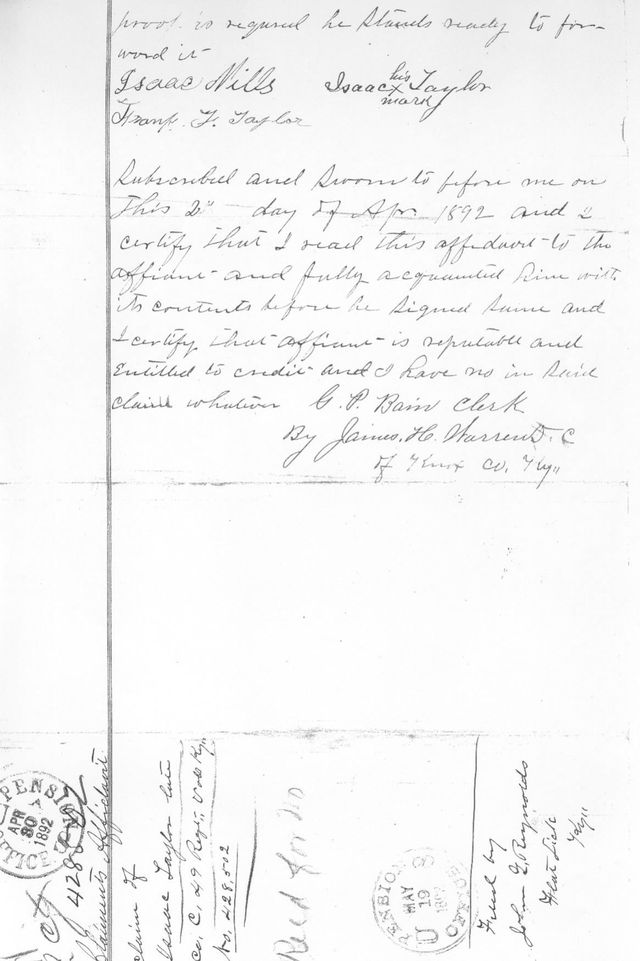 proof is required he stands ready to for-
word it
Isaac Mills Isaac his x mark Taylor
Frank F. Taylor
Subscribed and sworn to before me on
this 2" day of Apr 1892 and I
certify that I read this affidavit to the
affiant and fully acquainted him with
its contents before he signed same and
I certify that affiant is reputable and
Entitled to credit and I have no in said
claim whatever G. P. Bain Clerk
By James. H. Warren D. C
of Knox Co, Ky"
PENSION
APR
30
1892
OFFICE
Claimants Affidavit
claim of
Isaac Taylor late
co, C, 49 Regt. Vols Ky"
No. 428.502
PENSION
MAY
19
U
Filed by
John G. Reynolds
Flat Lick
Ky"